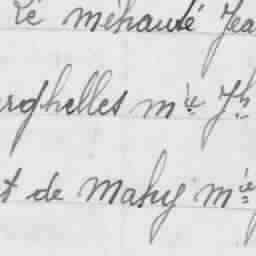 Le méhauté Jea
rghelles mie Jh
t de mahy mie